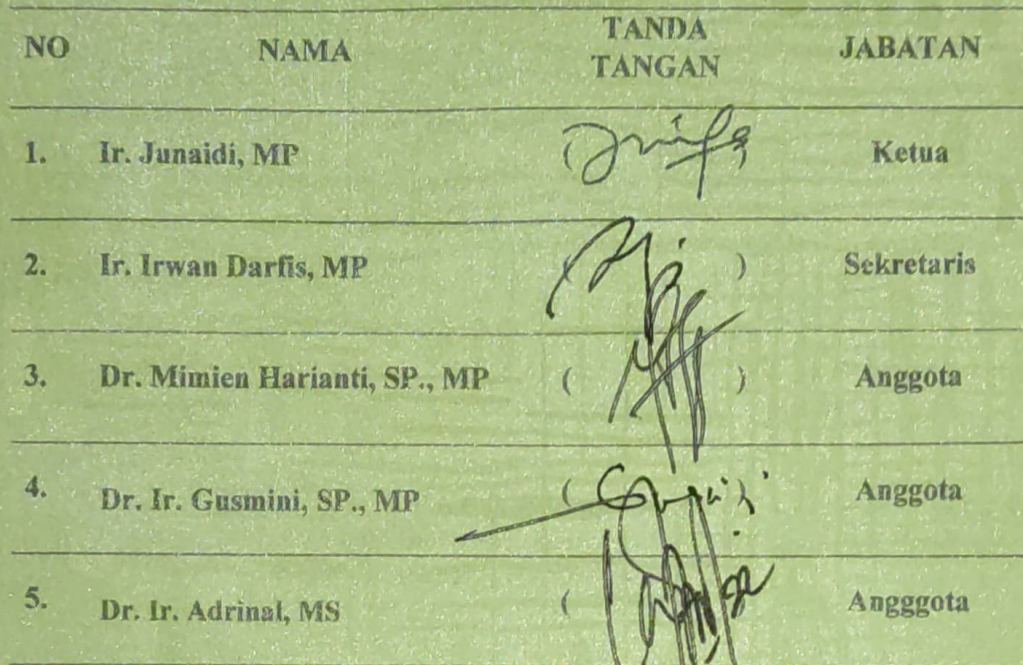 NO NAMA TANDA TANGAN JABATAN
1. Ir. Junaidi, MP ( ) Ketua
2. Ir. Irwan Darfis, MP ( ) Sekretaris
3. Dr. Mimien Harianti, SP., MP ( ) Anggota
4. Dr. Ir. Gusmini, SP., MP ( ) Anggota
5. Dr. Ir. Adrinal, MS ( Angggota